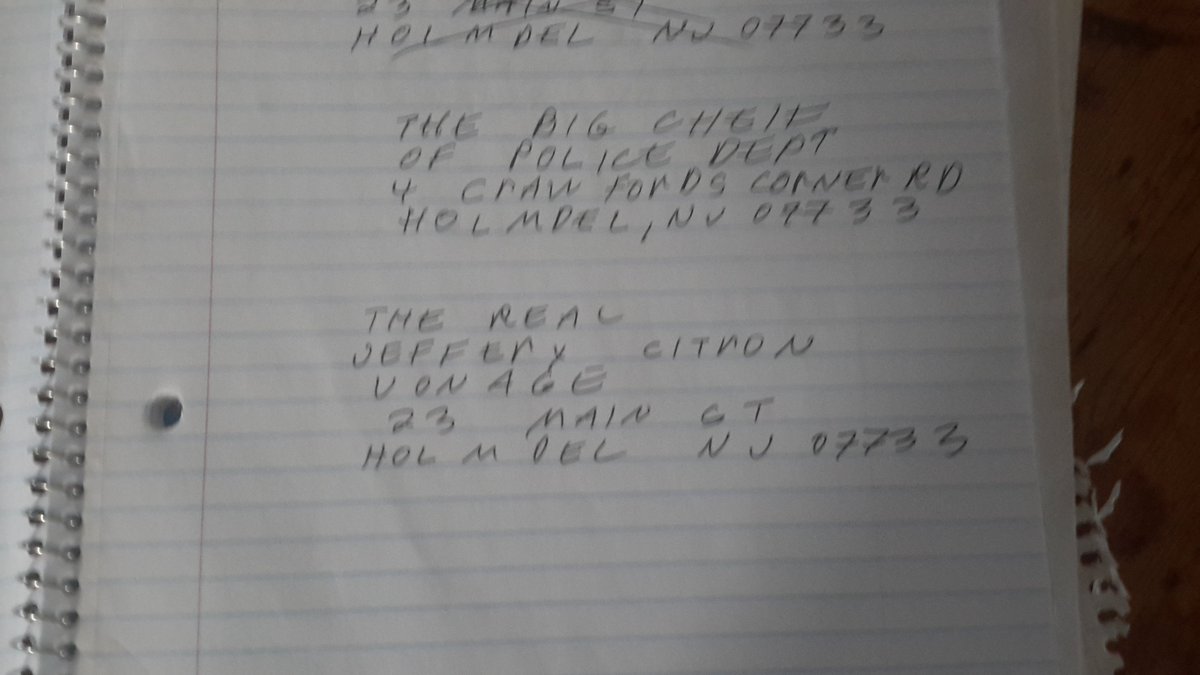 23 MAIN ST
HOLMDEL NJ 07733
THE BIG CHEIF
OF POLICE DEPT
4 CRAWFORDS CORNER RD
HOLMDEL, NJ 07733
THE REAL
JEFFERY CITRON
VONAGE
23 MAIN CT
HOLMDEL NJ 07733